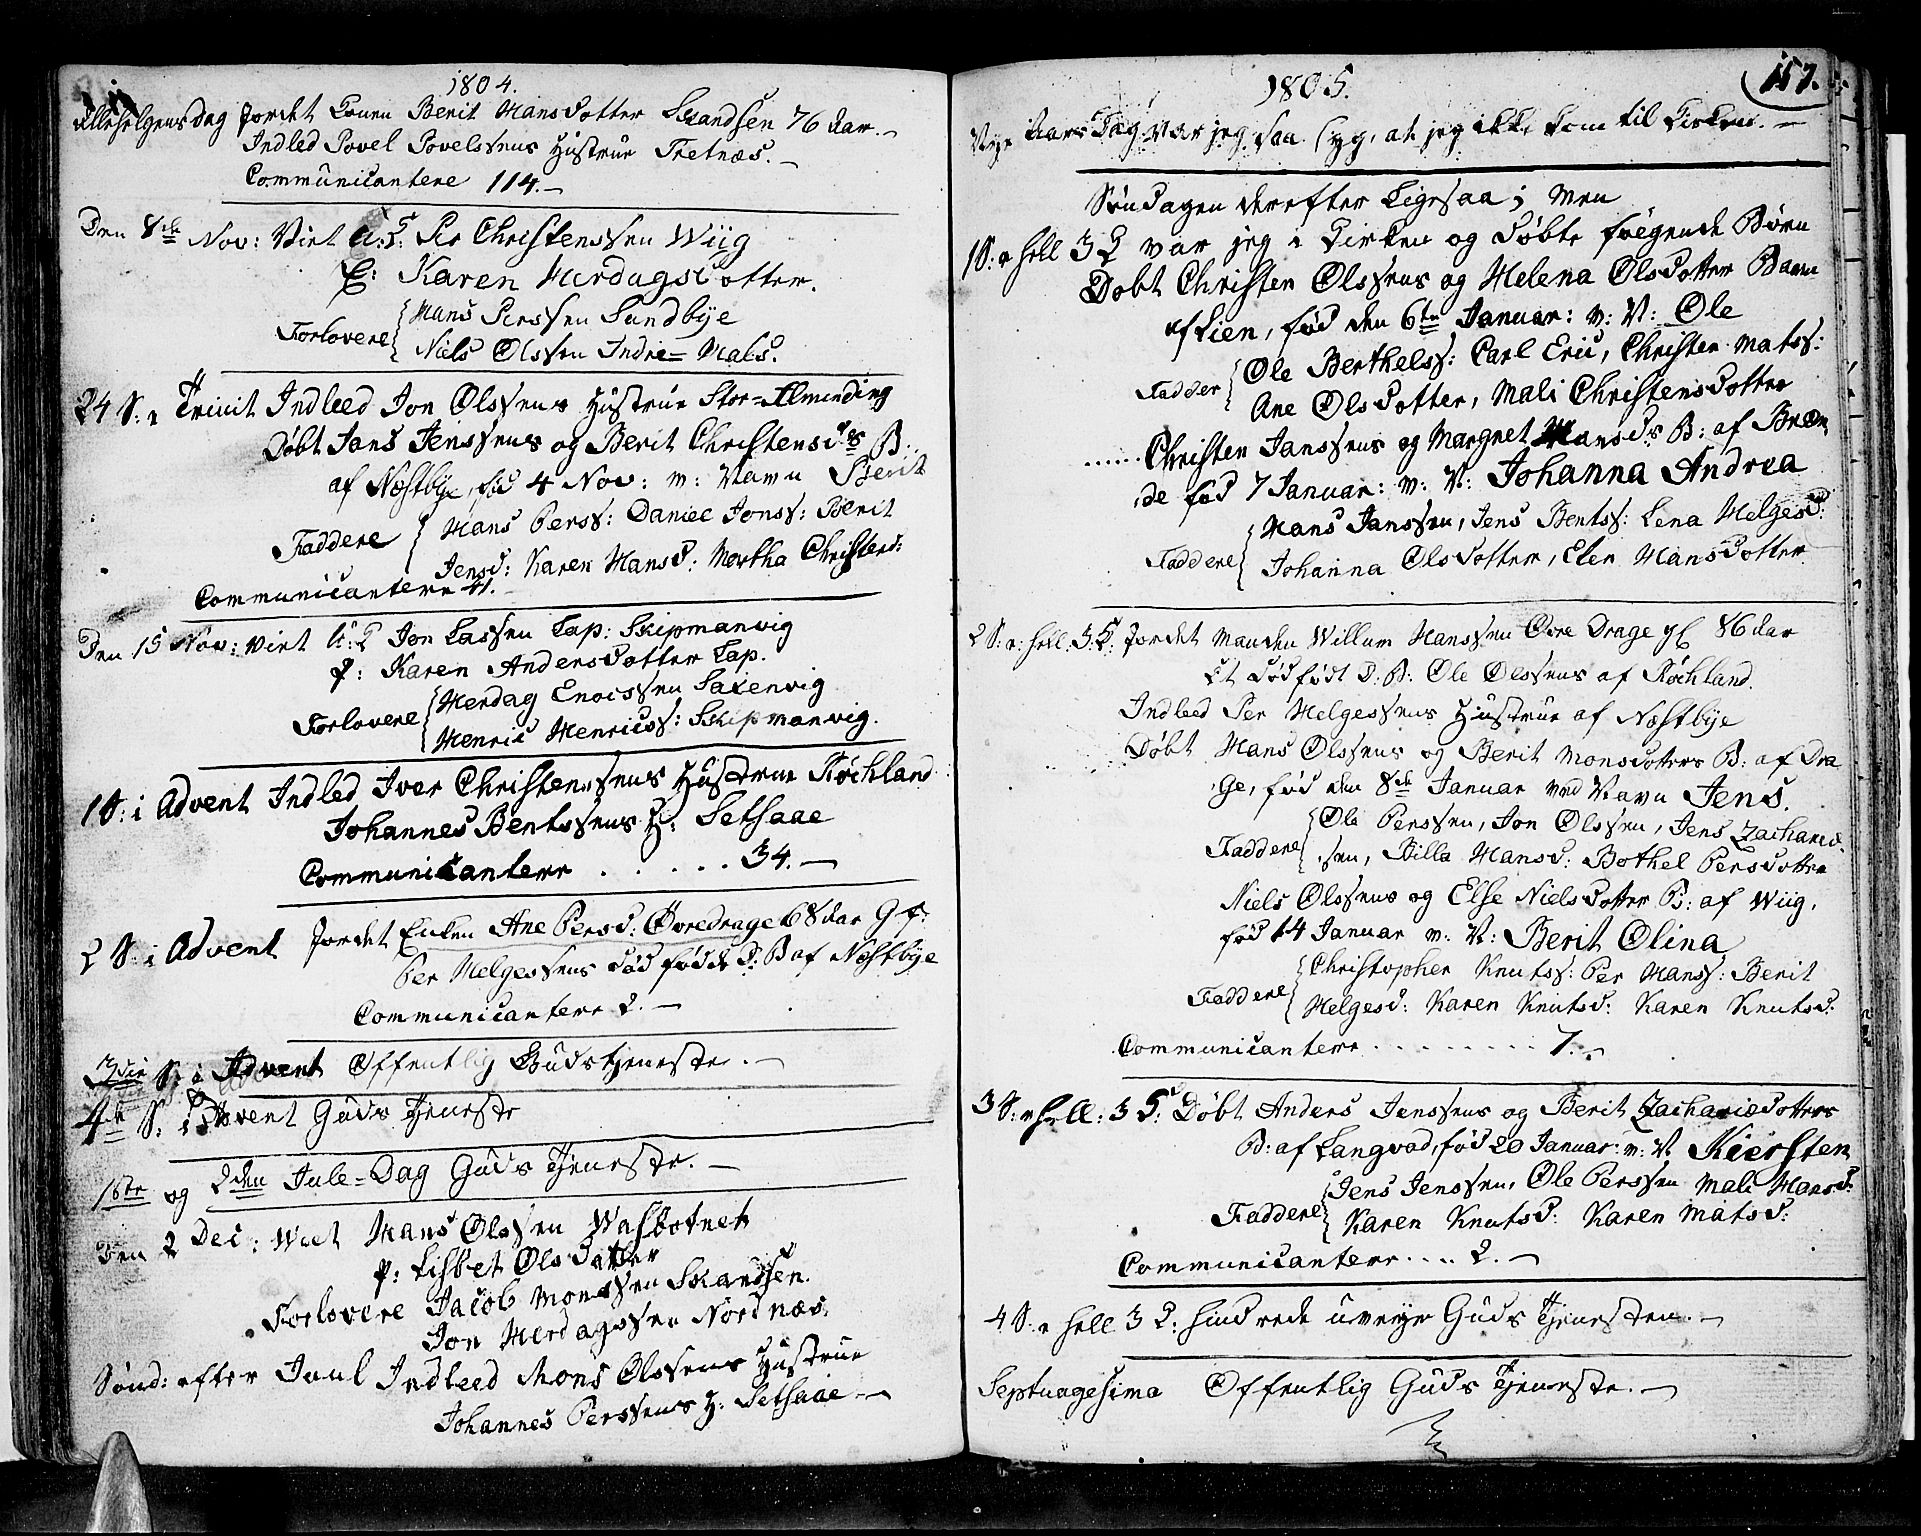 1804.
Allehelgens dag Jordet Konen Berit Hansdotter Skandsen 76 Aar.
Indled Povel Povelssens Hustrue Tretnæs.
Communicantere 114.
Den 8de Nov: Viet U: K: Per Christenssen Wiig
P: Karen Herdagsdotter.
Forlovere Hans Perssen Sundbye
Niels Olssen Indre=Nakes.
24 S: e Trinit Indleed Jon Olssens Hustrue Stor=Alminding
Døbt Jens Jenssens og Berit Christensd:s B:
af Næstbye, fød 4 Nov: m: Navn Berit
Faddere Hans Perss: Daniel Jonss: Berit
Jensd: Karen Hansd: Martha Christensd:
Communicantere 41.
Den 15 Nov: viet U: K Jon Lassen Lap: Skipmanvig
P: Karen Andersdotter Lap.
Forlovere Herdag Enocssen Saxenvig
Henric Henricss: Skipmanvig.
1 S: i Advent Indled Iver Christenssens Hustrue Røchland
Johannes Bentssens H: Setsaae
Communicantere . . . . . 34.
2 S: i Advent Jordet Enken Ane Persd: Øvredrage 68 Aar G f:
Per Helgessens død fødde D: B af Næstbye
Communicantere 2.
3die S: i Advent Offentlig Gudstjeneste.
4de S: i Advent Guds Tjeneste
1ste og 2den Jule=Dag Guds Tjeneste.
Den 2 Dec: Viet Hans Olssen Wasbotnet
P: Lisbet Olsdatter
Forlovere Jacob Monssen Skandsen.
Jon Herdagssen Nordnæs.
Sønd: efter Juul Indleed Mons Olssens Hustrue
Johannes Perssens H: Setsaae
157.
1805.
Nye Aars Dag var jeg saa syg, at jeg ikke kom til Kirken.
Søndagen derefter Ligesaa; men
1 S: e hell 3 K var jeg i Kirken og døbte følgende Børn
Døbt Christen Olssens og Helena Olsdotter Barn
af Lien, fød den 6te Januar: m: N: Ole
Fadder Ole Berthelss: Carl Eric, Christen Matss:
Ane Olsdotter, Mali Christensdotter
...... Christen Janssens og Margret Hansd:s B: af Bræn
de fød 7 Januar: m: N: Johanna Andrea
Faddere Hans Janssen, Jens Bentss: Lena Helgesd:
Johanna Olsdotter, Elen Hansdotter
2 S: e: hell: 3: K: Jordet Manden Willum Hanssen Øvre Drage gl 86 Aar
Et dødfødt D: B: Ole Olssens af Røchland.
Indleed Per Helgessens Hustrue af Næstbye
Døbt Hans Olssens og Berit Monsdotters B: af Dra
ge, fød den 8de Januar med Navn Jens.
Faddere Ole Perssen, Jon Olssen, Jens Zacharias
sen, Billa Hansd: Bothel Persdotter
Niels Olssens og Else Nielsdotter B: af Wiig,
fød 14 Januar m: N: Berit Olina
Faddere Christopher Knutss: Per Hanss: Berit
Helgesd: Karen Knutsd: Karen Knutsd:
Communicantere . . . . . . . . . 7.
3 S: e hell: 3 K: Døbt Anders Jenssens og Berit Zachariedotters
B: af Langvad, fød 20 Januar: m: N. Kiersten
Faddere Jens Jenssen, Ole Perssen Mali Hansd:
Karen Knutsd: Karen Matsd:
Communicantere .... 2.
4 S: e hell 3 K: hindrede uveyr Guds Tjenesten.
Septuagesima Offentlig Guds Tjeneste.